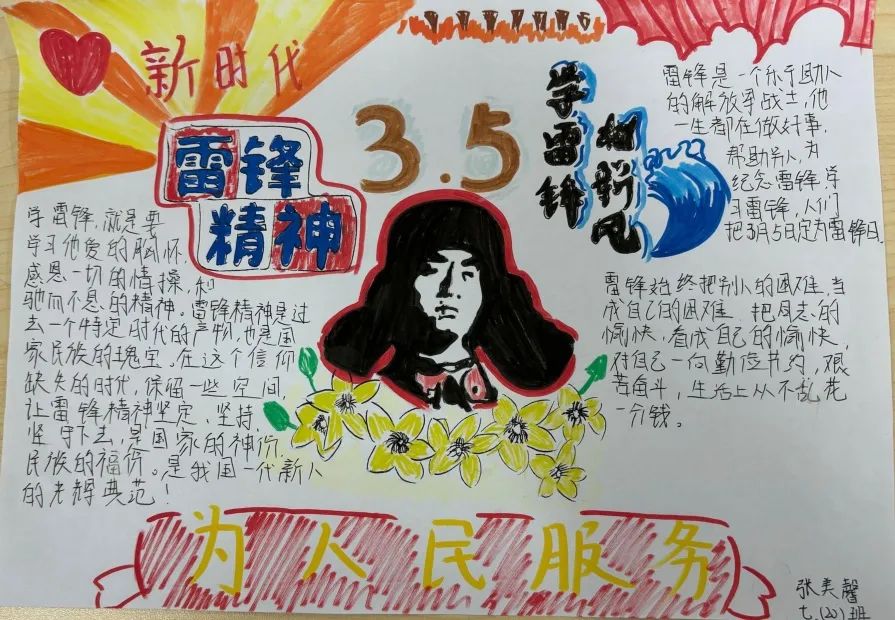 新时代
雷锋
精神
3.5
学雷锋
树新风
雷锋是一个乐于助人
的解放军战士,他
一生都在做好事,
帮助别人,为
纪念雷锋,学
习雷锋,人们
把3月5日定为雷锋日.
学雷锋,就是要
学习他爱的胸怀,
感恩一切的情操,和
驰而不息的精神。雷锋精神是过
去一个特定时代的产物,也是国
家民族的瑰宝。在这个信仰
缺失的时代,保留一些空间,
让雷锋精神坚定、坚持、
坚守下去,是国家的神份,
民族的福份。是我国一代新人
的光辉典范!
雷锋始终把别人的困难,当
成自己的困难,把同志的
愉快,看成自己的愉快,
对自己一向勤俭节约,艰
苦奋斗,生活上从不乱花
一分钱。
为人民服务
张美馨
七.(20)班